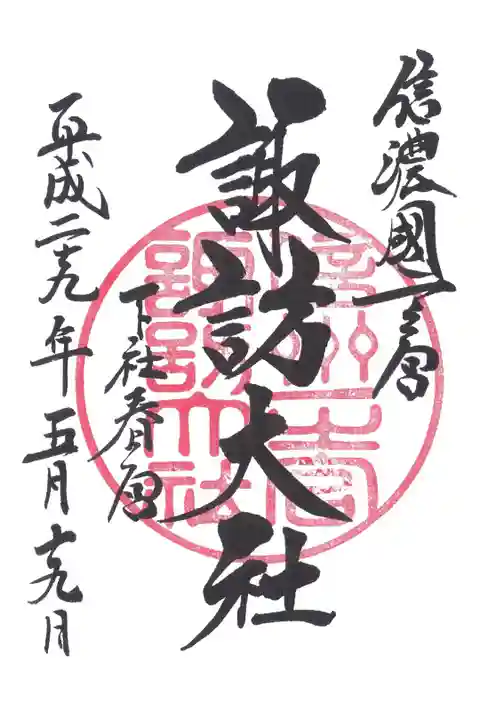 信濃國一之宮
諏訪大社
下社春宮
平成二十九年五月十九日
諏訪大社